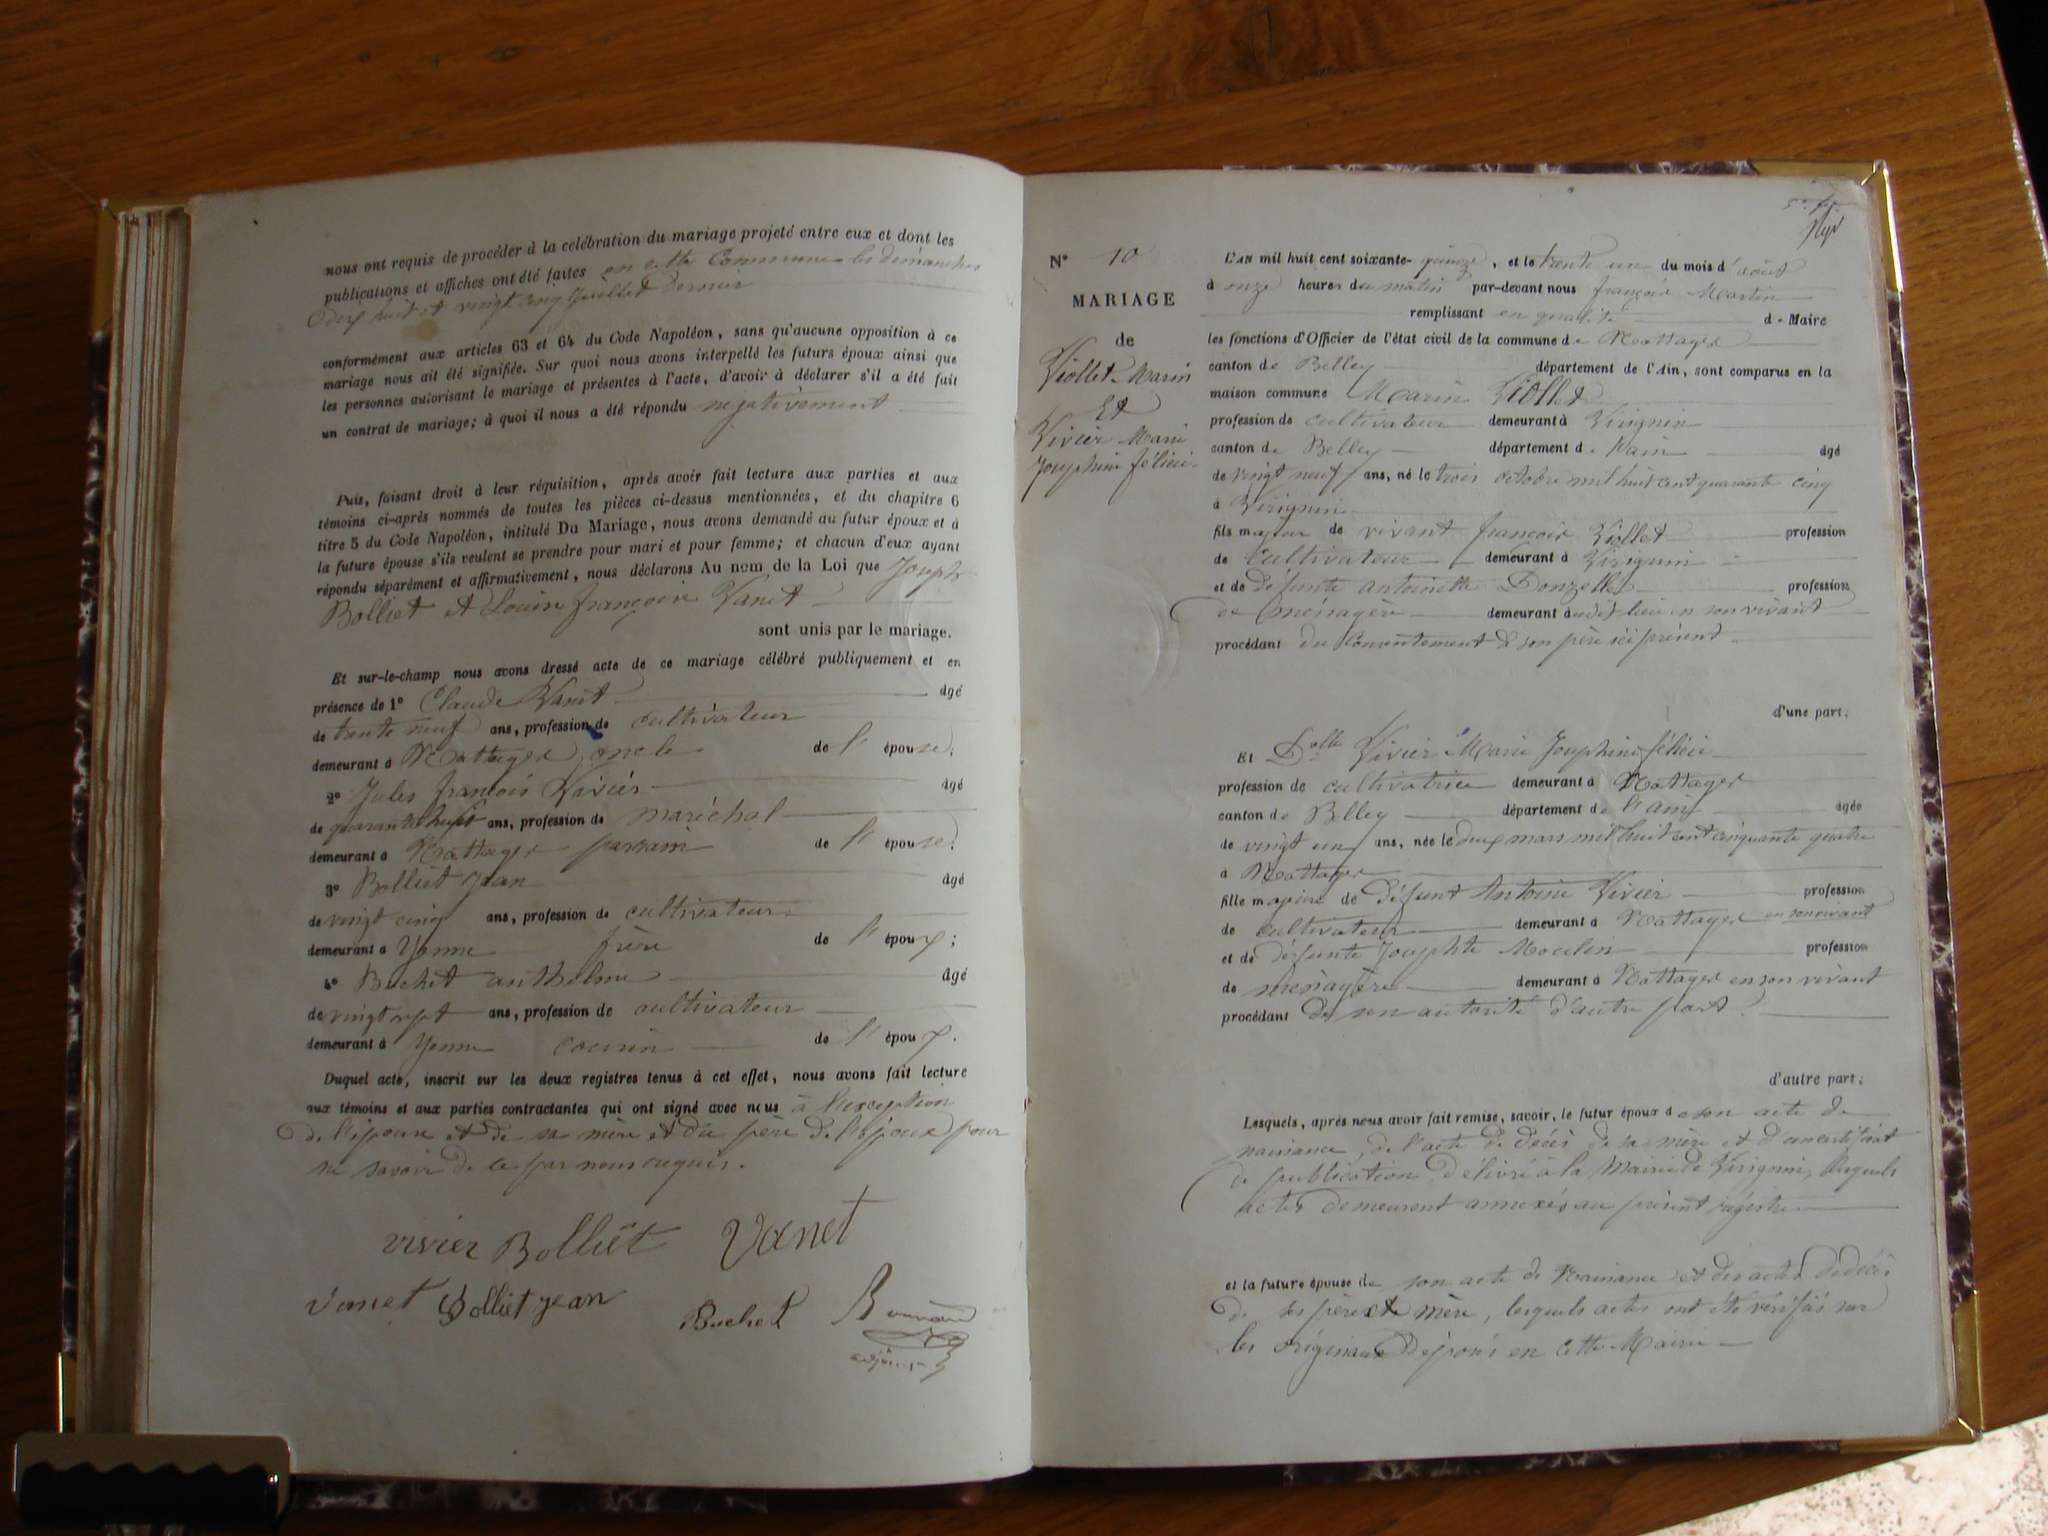 nous ont requis de procéder à la celébration du mariage projeté entre eux et dont les
publications et affiches ont été faites en cette Commune les dimanches
dix huit et vingt cinq Juillet dernier
conformément aux articles 63 et 64 du Code Napoléon, sans qu'aucune opposition à ce
mariage nous ait été signifiée. Sur quoi nous avons interpellé les futurs époux ainsi que
les personnes autorisant le mariage et présentes à l'acte, d'avoir à déclarer s'il a été fait
un contrat de mariage; à quoi il nous a été répondu negativement
Puis, faisant droit à leur réquisition, après avoir fait lecture aux parties et aux
témoins ci-après nommés de toutes les pièces ci-dessus mentionnées, et du chapitre 6
titre 5 du Code Napoléon, intitulé Du Mariage, nous avons demandé au futur époux et à
la future épouse s'ils veulent se prendre pour mari et pour femme; et chacun d'eux ayant
répondu séparément et affirmativement, nous déclarons Au nom de la Loi que Joseph
Bolliet et Louise françoise Vanet
sont unis par le mariage.
Et sur-le-champ nous avons dressé acte de ce mariage célébré publiquement et en
présence de 1º Claude Vanet âgé
de trente neuf ans, profession de cultivateur
demeurant à Nattages oncle de l' épouse.
2º Jules francois Vivier âgé
de quarante huit ans, profession de maréchal
demeurant à Nattages parrain de l' épouse.
3º Bolliet Jean âgé
de vingt cinq ans, profession de cultivateur
demeurant à Yenne frère de l' époux;
4º Buchet anthelme âgé
de vingt sept ans, profession de cultivateur
demeurant à Yenne cousin de l' époux.
Duquel acte, inscrit sur les deux registres tenus à cet effet, nous avons fait lecture
aux témoins et aux parties contractantes qui ont signé avec nous à l'exception
de l'épouse et de sa mère et du père de l'époux pour
ne savoir de ce par nous requis.
vivier Bolliet Vanet
Vanet Bolliet jean
Buchet
adjoint
Nº 10
MARIAGE
de
Viollet Marin
Et
Vivier Marie
Josephine félicie
L'AN mil huit cent soixante-quinze, et le trente un du mois d'août
à onze heures du matin par-devant nous françois Martin
remplissant en qualité de Maire
les fonctions d'Officier de l'état civil de la commune de Nattages
canton de Belley département de l'Ain, sont comparus en la
maison commune Marin Viollet
profession de cultivateur demeurant à Virignin
canton de Belley département de l'ain âgé
de vingt neuf ans, né le trois octobre mil huit cent quarante cinq
à Virignin
fils majeur de vivant françois Viollet profession
de Cultivateur demeurant à Virignin
et de défunte Antoinette Donzelle profession
de ménagère demeurant audit lieu en son vivant
procédant du Consentement de son père ici présent
d'une part;
Et Dolle Vivier Marie Josephine félicie
profession de cultivatrice demeurant à Nattages
canton de Belley département de l'ain âgée
de vingt un ans, née le deux mars mil huit cent cinquante quatre
à Nattages
fille majeure de défunt Antoine Vivier profession
de cultivateur demeurant à Nattages en son vivant
et de défunte Josephte Moulin profession
de ménagère demeurant à Nattages en son vivant
procédant de son autorité d'autre part.
d'autre part;
Lesquels, après nous avoir fait remise, savoir, le futur époux de son acte de
naissance, de l'acte de décès de sa mère et d'un certificat
de publication délivré à la Mairie de Virignin, lesquels
actes demeurent annexés au présent régistre
et la future épouse de son acte de Naissance et des actes de décès
de ses père et mère, lesquels actes ont été vérifiés sur
les originaux déposés en cette Mairie